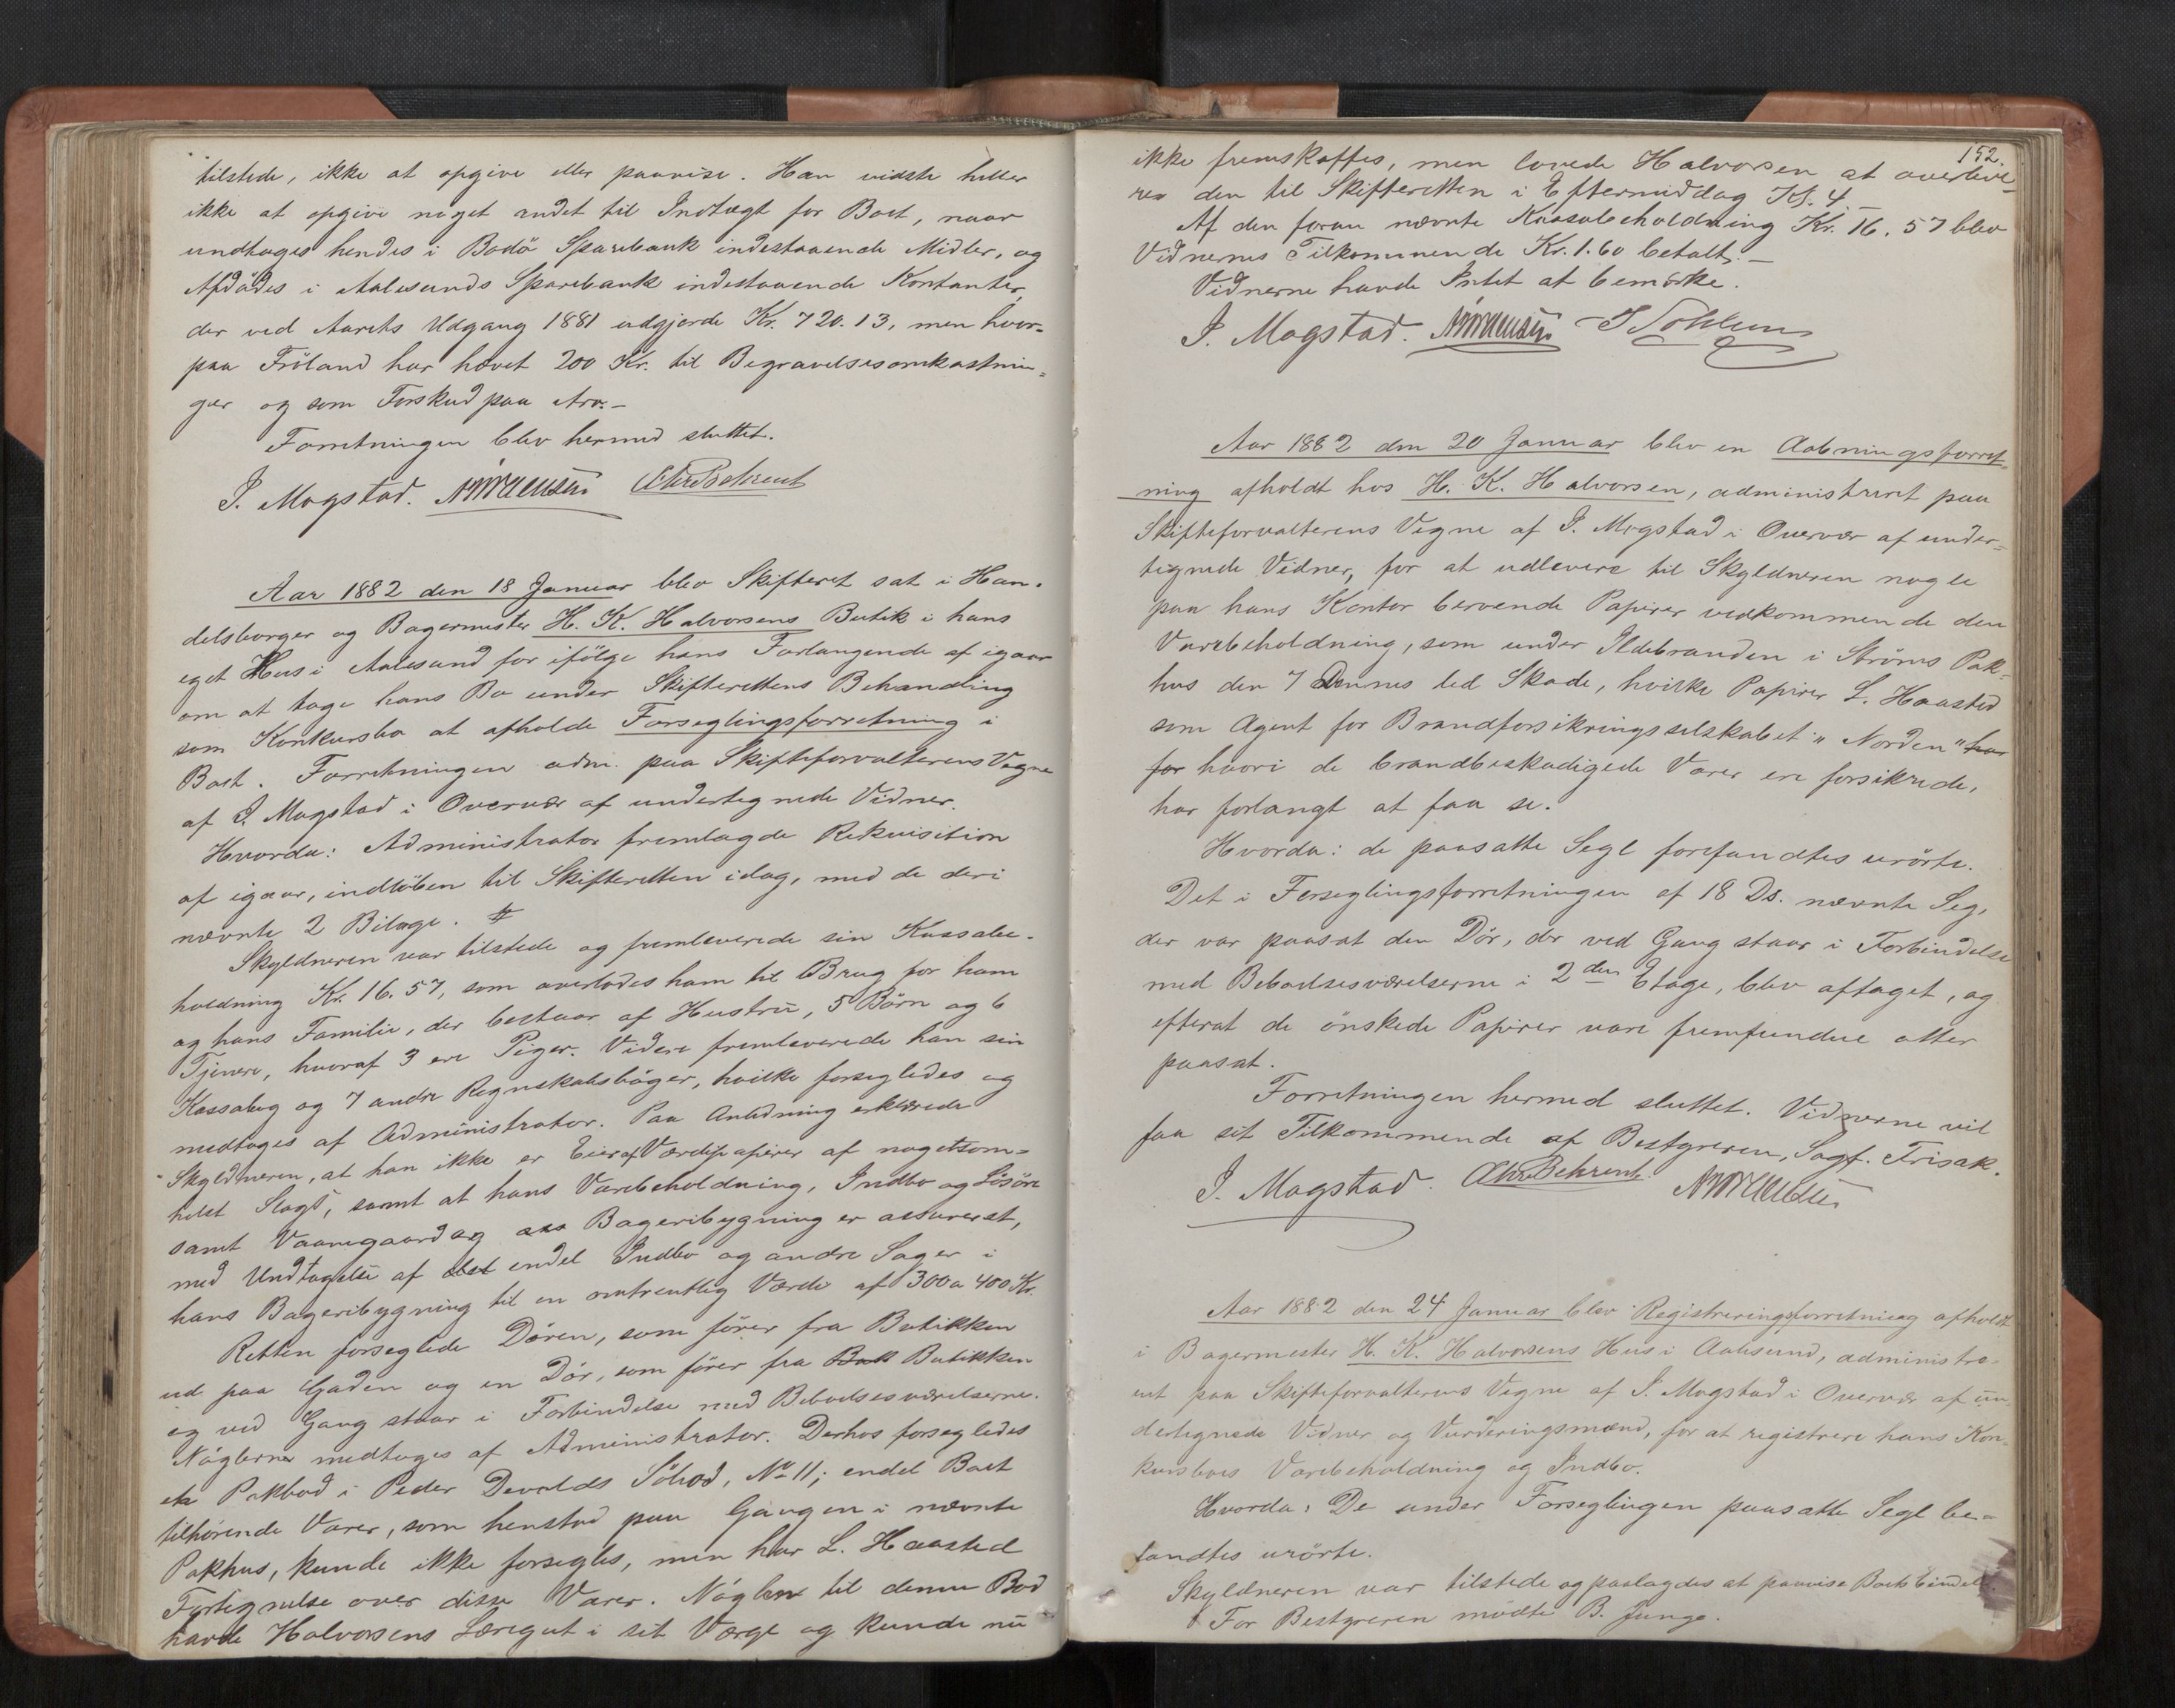 tilstede, ikke at opgive eller paavise. Han vidste heller
ikke at opgive noget andet til Indtægt for Boet, naar
undtages hendes i Bodö Sparebank indestaaende Midler, og
Afdødes i Aalesunds Sparebank indestaaende Kontanter,
der ved Aarets Udgang 1881 udgjorde Kr. 720.13, men hvor-
paa Fröland har hævet 200 Kr. til Begravelsesomkostnin-
ger og som Forskud paa Arv.-
Forretningen blev hermed sluttet.
J. Mogstad. Chr Behrent
Aar 1882 den 18 Januar blev Skifteret sat i Han-
delsborger og Bagermester H. K. Halvorsens Butik i hans
eget Hus i Aalesund for ifölge hans Forlangende af igaar
om at tage hans Bo under Skifterettens Behandling
som Konkursbo at afholde Forseglingsforretning i
Boet. Forretningen adm. paa Skifteforvalterens Vegne
af J. Mogstad i Overvær af undertegnede Vidner.
Hvorda: Administrator fremlagde Rekvisition
af igaar, indlöben til Skifteretten idag, med de deri
nævnte 2 Bilage.
Skyldneren var tilstede og fremleverede sin Kassabe-
holdning Kr. 16.57, som overlodes ham til Brug for ham
og hans Familie, der bestaar af Hustru, 5 Börn og 6
Tjenere, hvoraf 3 ere Piger. Videre fremleverede han sin
Kassabog og 7 andre Regnskabsböger, hvilke forsegledes og
medtoges af Administrator. Paa Anledning erklærede
Skyldneren, at han ikke er Eier af Værdipapirer af nogetsom-
helst Slags, samt at hans Varebeholdning, Indbo og Lösöre
samt Vaaningsgaard og Bageribygning er assureret,
med Undtagelse af endel Indbo og andre Sager i
hans Bageribygning til en omtrentlig Værdi af 300 a 400 Kr.
Retten forseglede Dören, som förer fra Butikken
ud paa Gaden og en Dör, som förer fra Butikken
og ved Gang staar i Forbindelse med Beboelsesværelserne.
Nöglerne medtoges af Administrator. Derhos forsegledes
en Pakbod i Peder Devolds Söbod, No 11; endel Boet
tilhörende Varer, som henstod paa Gangen i nævnte
Pakhus, kunde ikke forsegles, men har L. Haasted
Fortegnelse over disse Varer. Nöglen til denne Bod
havde Halvorsens Læregut i sit Værge og kunde nu
152.
ikke fremskaffes, men lovede Halvorsen at overleve-
re den til Skifteretten i Eftermiddag Kl. 4.
Af den foran nævnte Kassabeholdning Kr. 16.57 blev
Vidnernes Tilkommende Kr. 1.60 betalt.-
Vidnerne havde Intet at bemærke.
J. Mogstad.
Aar 1882 den 20 Januar blev en Aabningsforret-
ning afholdt hos H. K. Halvorsen, administreret paa
Skifteforvalterens Vegne af J. Mogstad i Overvær af under-
tegnede Vidner, for at udlevere til Skyldneren nogle
paa hans Kontor beroende Papirer vedkommende den
Varebeholdning, som under Ildebranden i Ströms Pak-
hus den 7 Dennes led Skade, hvilke Papirer L. Haasted
som Agent for Brandforsikringsselskabet "Norden" har
for hvori de brandbeskadigede Varer ere forsikrede,
har forlangt at faa se.
Hvorda: de paasatte Segl forefandtes urörte.
Det i Forseglingsforretningen af 18 Ds. nævnte Segl,
der var paasat den Dör, der ved Gang staar i Forbindelse
med Beboelsesværelserne i 2den Etage, blev aftaget, og
efterat de önskede Papirer vare fremfundne atter
paasat.
Forretningen hermed sluttet. Vidnerne vil
faa sit Tilkommende af Bestyreren, Sagf. Frisak.
J. Mogstad. Chr Behrent.
Aar 1882 den 24 Januar blev Registreringsforretning afholdt
i Bagermester H. K. Halvorsens Hus i Aalesund, administre-
ret paa Skifteforvalterens Vegne af J. Mogstad i Overvær af un-
dertegnede Vidner og Vurderingsmænd, for at registrere hans Kon-
kursboes Varebeholdning og Indbo.
Hvorda: De under Forseglingen paasatte Segl be-
fandtes urörte.
Skyldneren var tilstede og paalagdes at paavise Boets Eiendele
For Bestyreren mödte B. Junge.